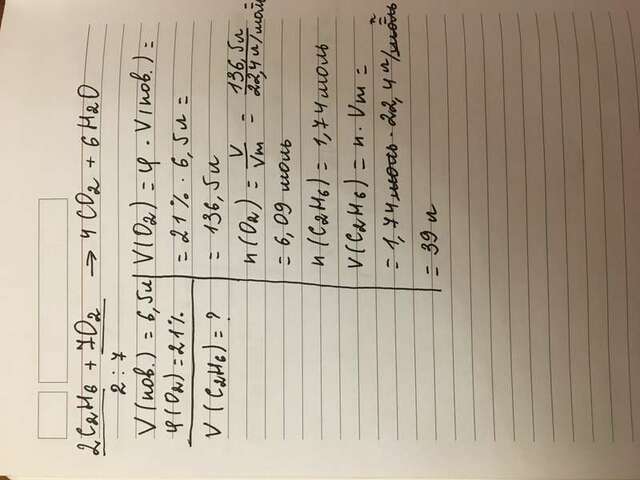 2C2H6 + 7O2 → 4CO2 + 6H2O
2 : 7
V(пов.) = 6,5л
φ(O2) = 21%
V(C2H6) = ?
V(O2) = φ · V(пов.) =
= 21% · 6,5л =
= 136,5л
n(O2) = V/Vm = 136,5л/22,4 л/моль =
= 6,09 моль
n(C2H6) = 1,74 моль
V(C2H6) = n · Vm =
= 1,74 моль · 22,4 л/моль =
= 39 л